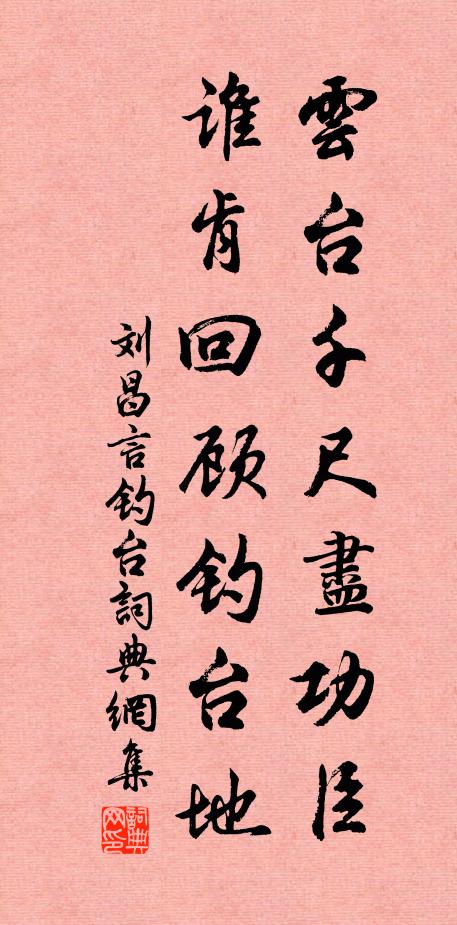 雲台千尺盡功臣
谁肯回顾钓台地
刘昌言钓台詞典網集
詞典网印